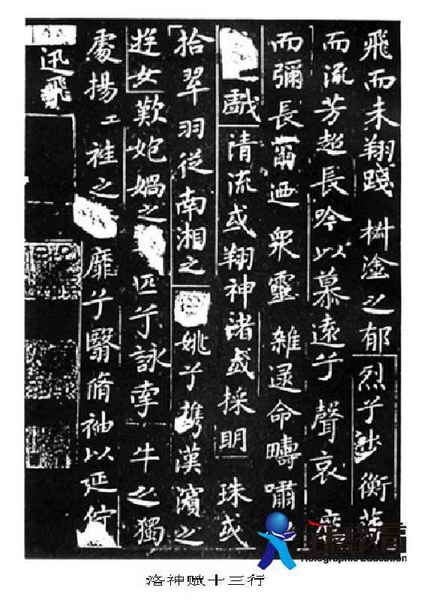 飛而未翔踐椒塗之郁烈兮步衡薄
而流芳超長吟以慕遠兮聲哀厲
而彌長爾迺眾靈雜遝命疇嘯
戲清流或翔神渚或採明珠或
拾翠羽從南湘之姚兮攜漢濱之
遊女歎炮媧之匹兮詠牽牛之獨
處揚袿之靡兮翳脩袖以延佇
迅飛
Holographic Education
洛神赋十三行